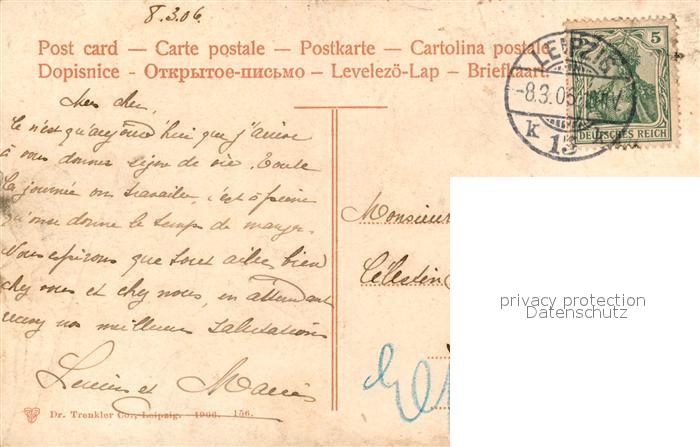 8.3.06.
Post card — Carte postale — Postkarte — Cartolina postale
Dopisnice - Открытое-письмо — Levelező-Lap — Briefkaart
LEIPZIG
-8.3.06
k 13
5
DEUTSCHES REICH
Mon cher,
Ce n'est qu'aujourd'hui que j'arrive
à vous donner signe de vie. Toute
la journée on travaille, c'est à peine
qu'on donne le temps de manger.
Nous espérons que tout aille bien
chez vous et chez nous, en attendant
recevez nos meilleures salutations
Lucien et
Monsieur
Célestin
privacy protection
Datenschutz
Dr. Trenkler Co., Leipzig. 1906. 156.